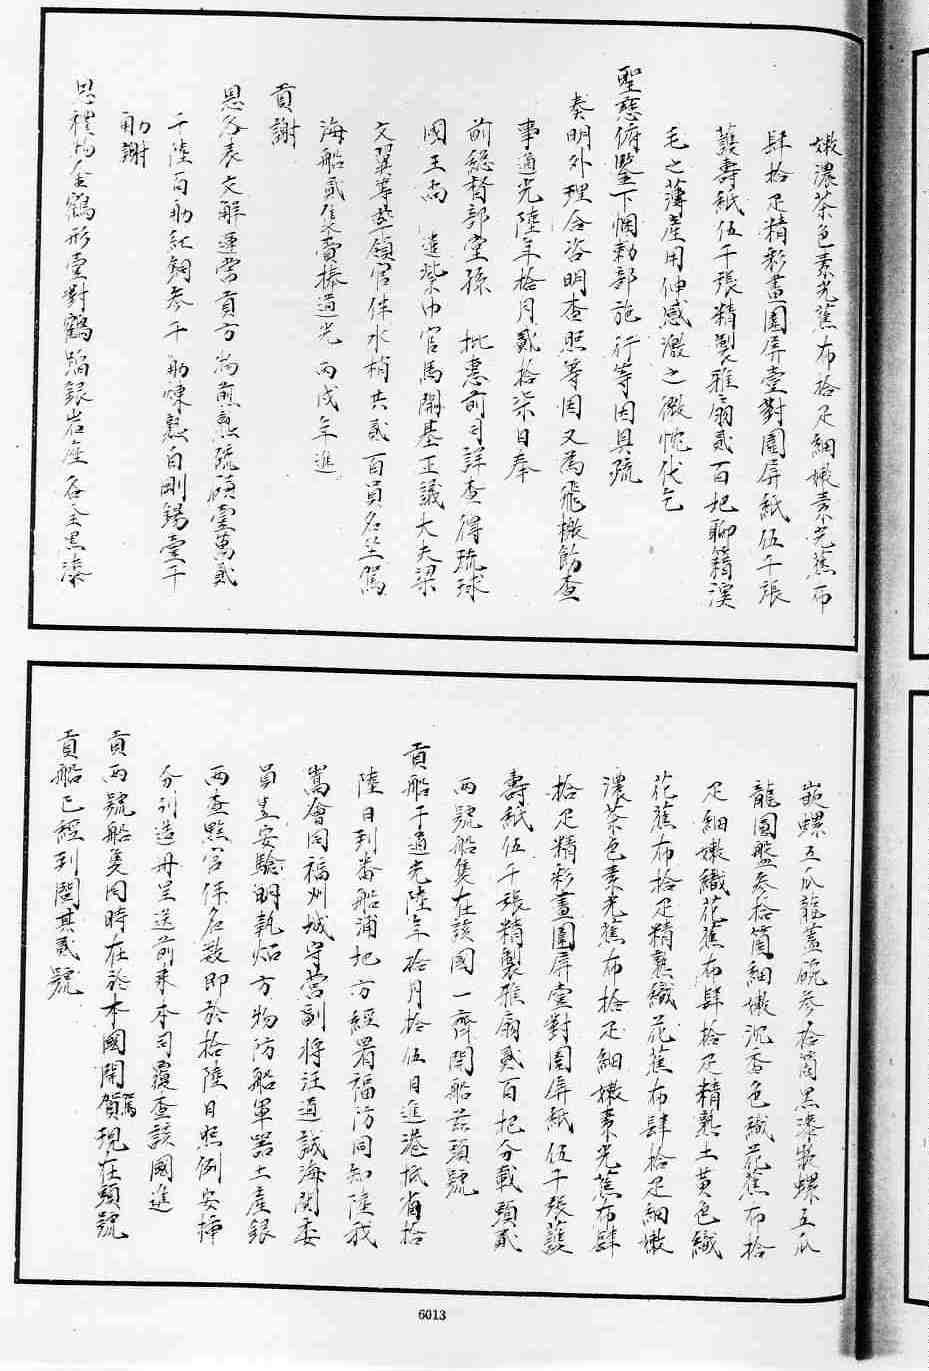 嫩濃茶色素光蕉布拾疋細嫩素光蕉布
肆拾疋精彩畫圍屏壹對圍屏紙伍千張
護壽紙伍千張精製雅扇貳百把聊藉溪
毛之薄產用伸感激之微忱伏乞
聖慈俯鑒下悃勅部施行等因具疏
奏明外理合咨明查照等因又為飛檄飭查
事道光陸年拾月貳拾柒日奉
前總督部堂孫 批憲前司詳查得琉球
國王尚 遣紫巾官馬開基正議大夫梁
文翼等恭領官伴水梢共貳百員名坐駕
海船貳隻賫捧道光丙戌年進
貢謝
恩各表文解運常貢方物煎熟硫磺壹萬貳
千陸百觔紅銅參千觔煉熟白剛錫壹千
觔謝
恩禮物金鶴形壹對鶴踏銀岩座各全黑漆
嵌螺五爪龍蓋碗參拾箇黑漆嵌螺五爪
龍圓盤參拾箇細嫩沉香色織花蕉布拾
疋細嫩織花蕉布肆拾疋精熟土黃色織
花蕉布拾疋精熟織花蕉布肆拾疋細嫩
濃茶色素光蕉布拾疋細嫩素光蕉布肆
拾疋精彩畫圍屏壹對圍屏紙伍千張護
壽紙伍千張精製雅扇貳百把分載頭貳
兩號船隻在該國一齊開船茲頭號
貢船于道光陸年拾月拾伍日進港抵省拾
陸日到番船浦地方經署福防同知陸我
嵩會同福州城守營副將汪道誠海關委
員豈安驗明執炤方物防船軍器土產銀
兩查點官伴名數即於拾陸日照例安揷
分別造冊呈送前來本司覆查該國進
貢兩號船隻同時在於本國開駕現在頭號
貢船已經到閩其貳號
6013